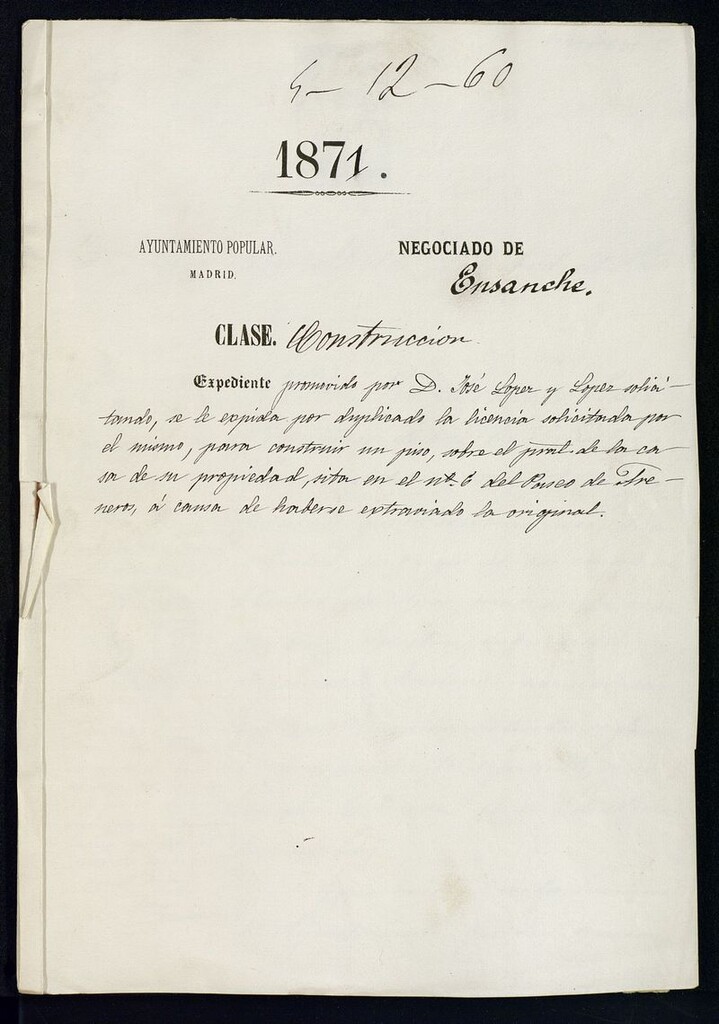 5-12-60
1871.
AYUNTAMIENTO POPULAR.
MADRID.
NEGOCIADO DE
Ensanche.
CLASE. Construccion
Expediente promovido por D. José Lopez y Lopez solici-
tando, se le expida por duplicado la licencia solicitada por
el mismo, para construir un piso, sobre el pral. de la ca-
sa de su propiedad, sita en el nº 6 del Paseo de Are-
neros, á causa de haberse extraviado la original.